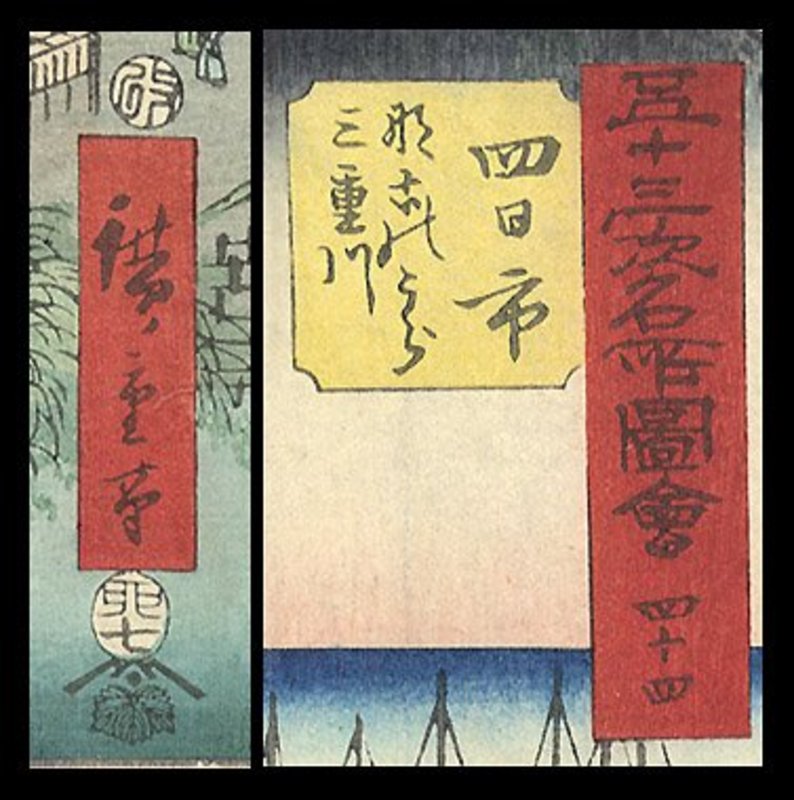 五十三次名所圖會 四十四
四日市
那古のうら
三重川
改
廣重筆
卯七